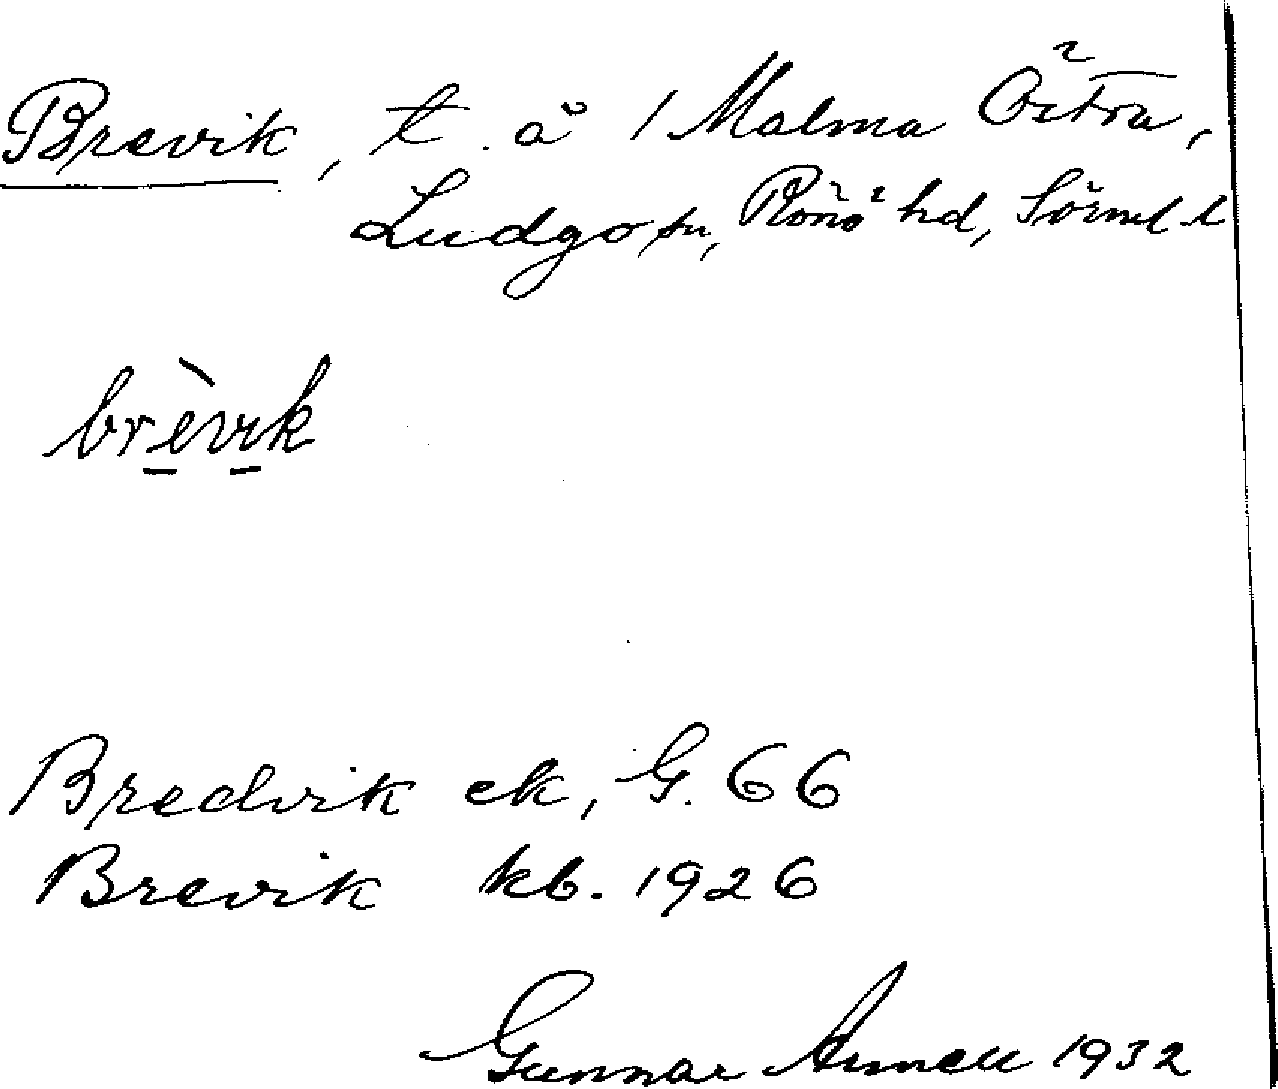 Brevik, t. å 1 Malma Östra,
Ludgo sn, Rönö hd, Sörml. l
brèvik
Bredvik ek, G. 66
Brevik kb. 1926
Gunnar Annell 1932